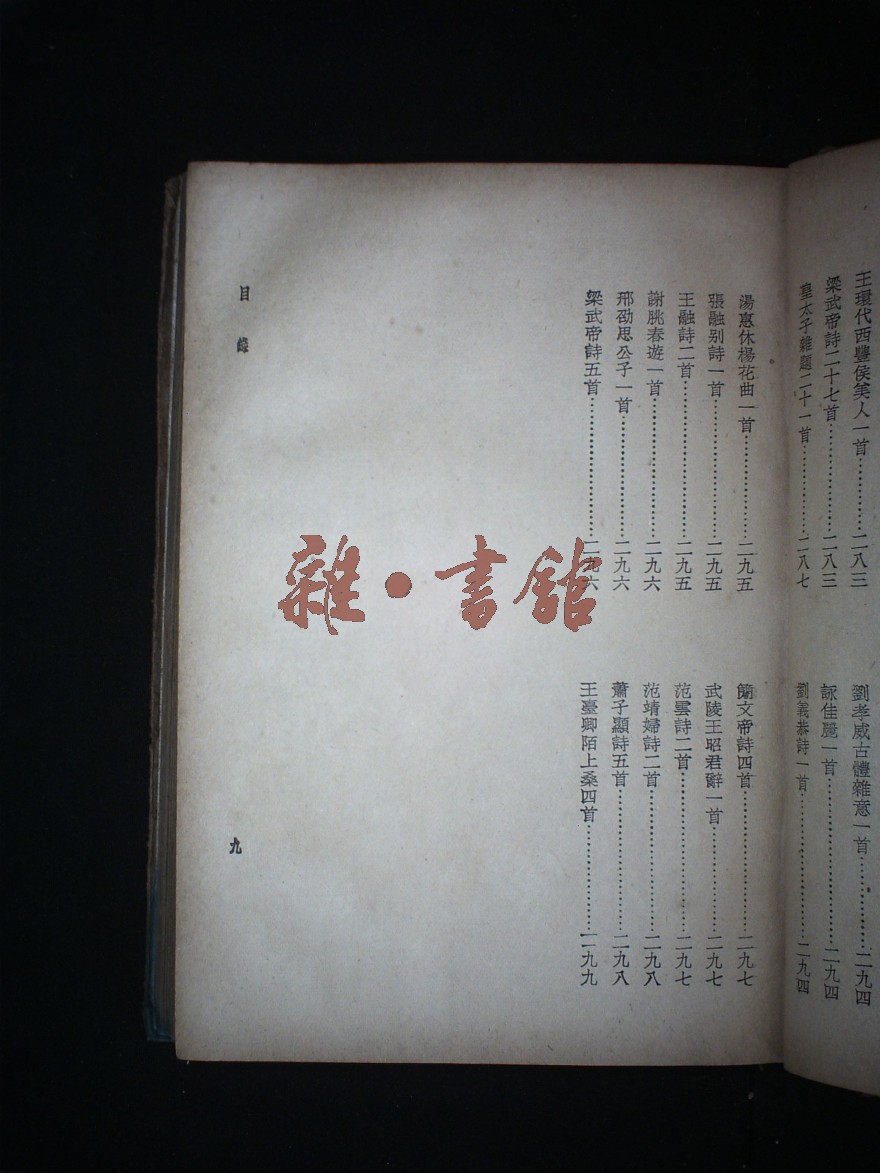 王環代西豐侯美人一首……二八三
梁武帝詩二十七首……二八三
皇太子雜題二十一首……二八七
劉孝威古體雜意一首……二九四
詠佳麗一首……二九四
劉義恭詩一首……二九四
湯惠休楊花曲一首……二九五
張融別詩一首……二九五
王融詩二首……二九五
謝朓春遊一首……二九六
邢劭思公子一首……二九六
梁武帝詩五首……二九六
簡文帝詩四首……二九七
武陵王昭君辭一首……二九七
范雲詩二首……二九七
范靖婦詩二首……二九八
蕭子顯詩五首……二九八
王臺卿陌上桑四首……二九九
目錄
九
雜·書館